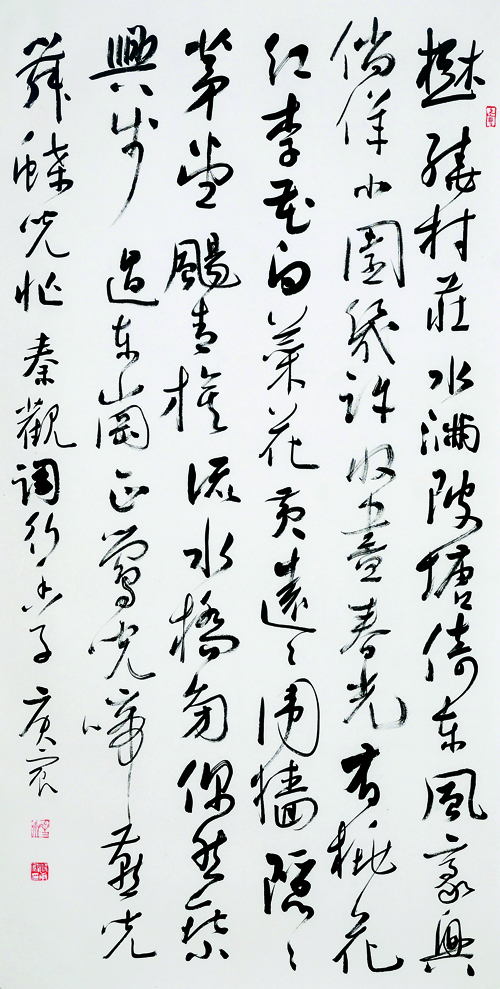 樹繞村莊水滿陂塘倚东風豪興
倘佯小園幾許收盡春光有桃花
红李花白菜花黄遠〻围墙隱〻
茅堂颺青旗流水橋旁偶然乘
興步過东岡正鶯兒啼燕兒
舞蝶兒忙 秦觀詞行香子 庚寅